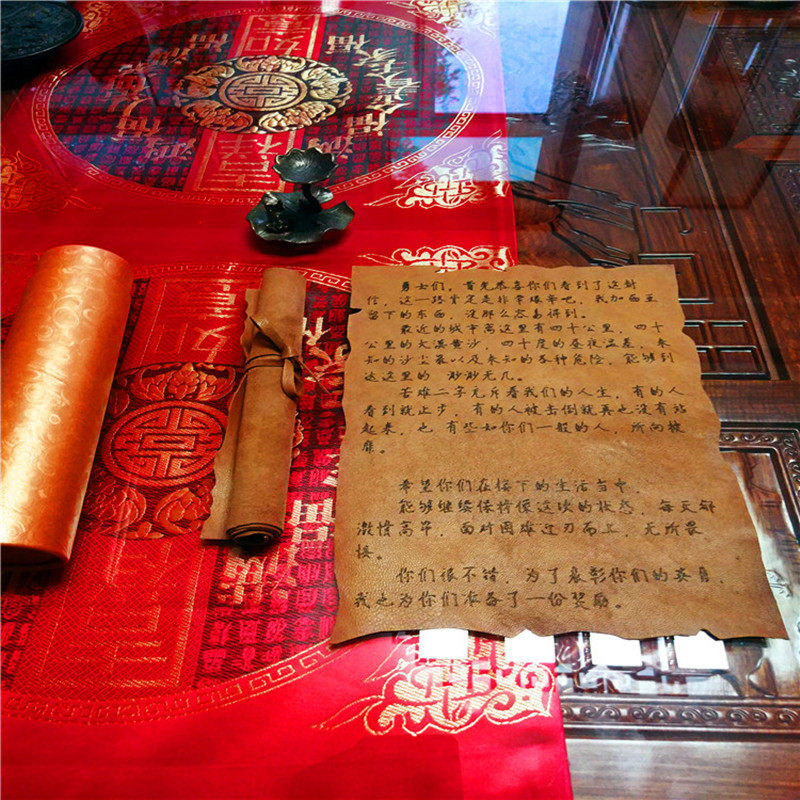 勇士们，首先恭喜你们看到了这封
信，这一路肯定是非常艰辛吧，我加西亚
留下的东西，没那么容易得到。
最近的城市离这里有四十公里，四十
公里的大漠黄沙，四十度的昼夜温差，未
知的沙尘暴以及未知的各种危险，能够到
达这里的 渺渺无几。
苦难二字充斥着我们的人生，有的人
看到就止步，有的人被击倒就再也没有站
起来，也 有些如你们一般的人，所向披
靡。
希望你们在接下的生活当中，
能够继续保持像这次的状态，每天都
激情高昂，面对困难迎刃而上，无所畏
惧。
你们很不错，为了表彰你们的英勇，
我也为你们准备了一份奖励。